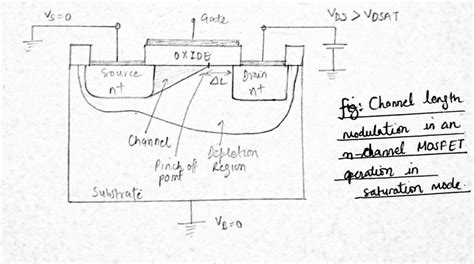 VS=0
Gate
VDS > VDSAT
OXIDE
Source
n+
ΔL
Drain
n+
Channel
Pinch off
point
Depletion
Region
Substrate
VB=0
fig: Channel length
modulation in an
n-channel MOSFET
operation in
saturation mode.